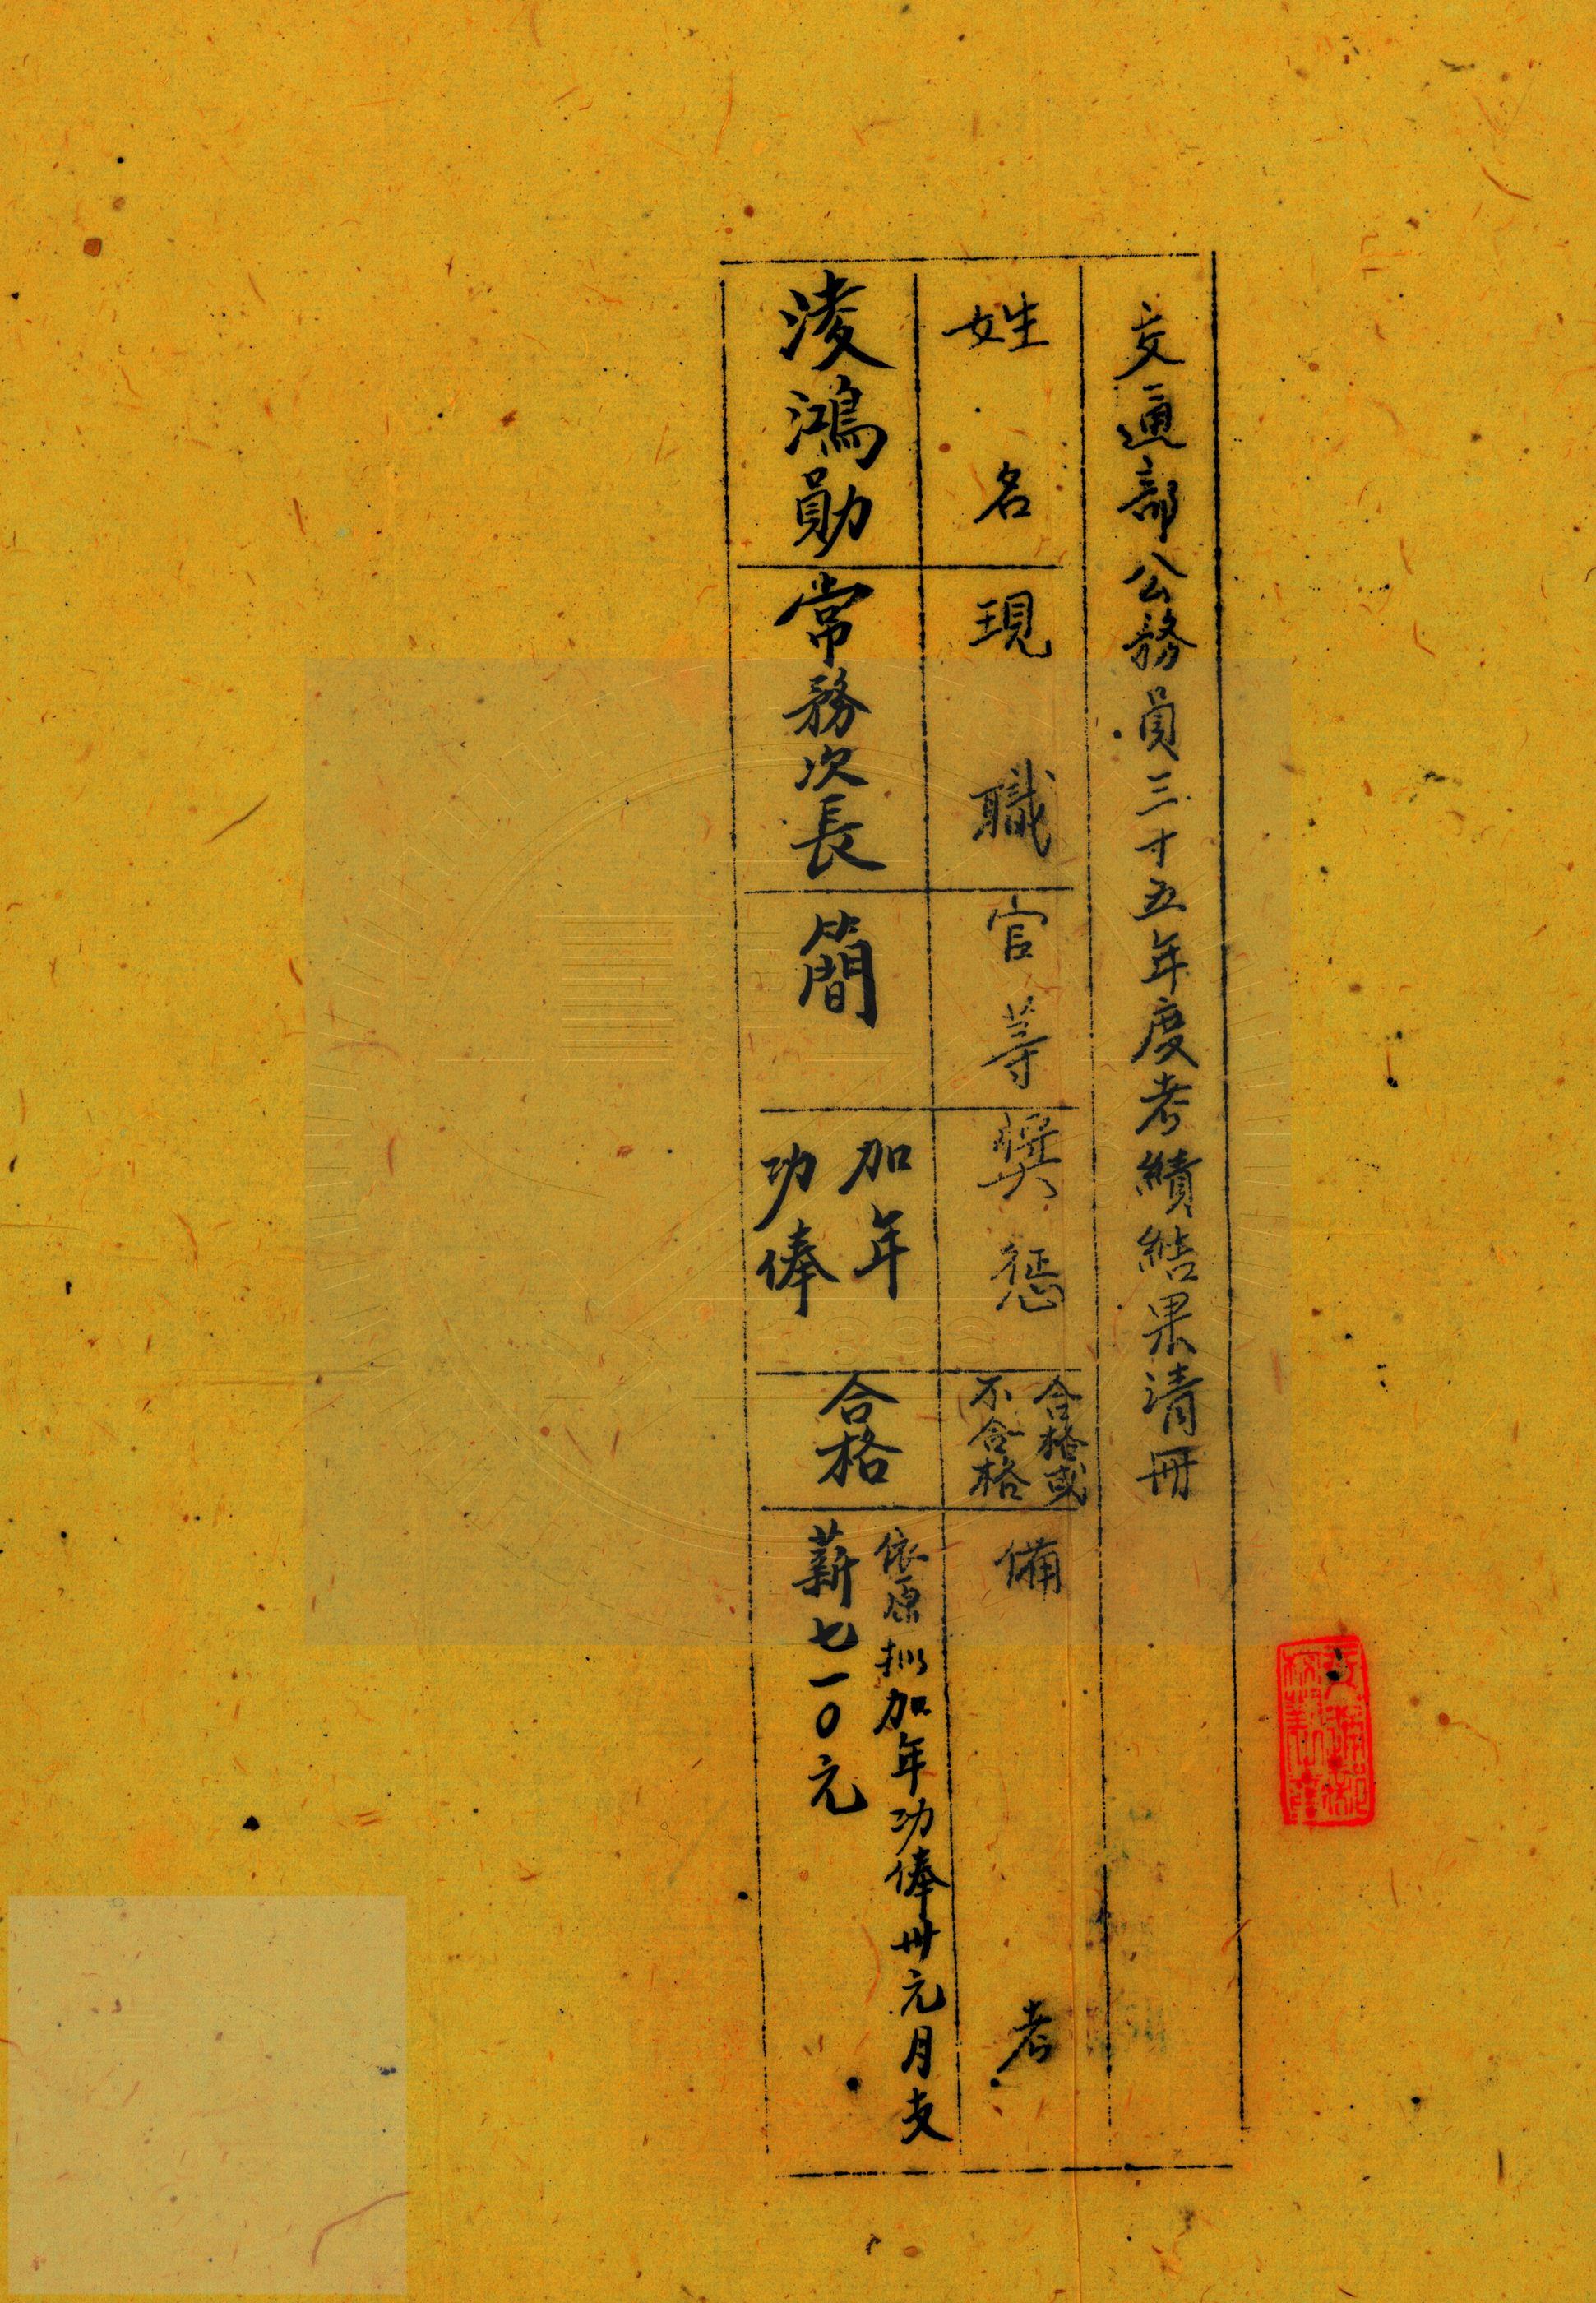 交通部公務員三十五年度考績結果清冊
姓名
現職
官等
獎懲
合格或
不合格
備考
淩鴻勛
常務次長
簡
加年
功俸
合格
依原拟加年功俸卅元月支
薪七一〇元